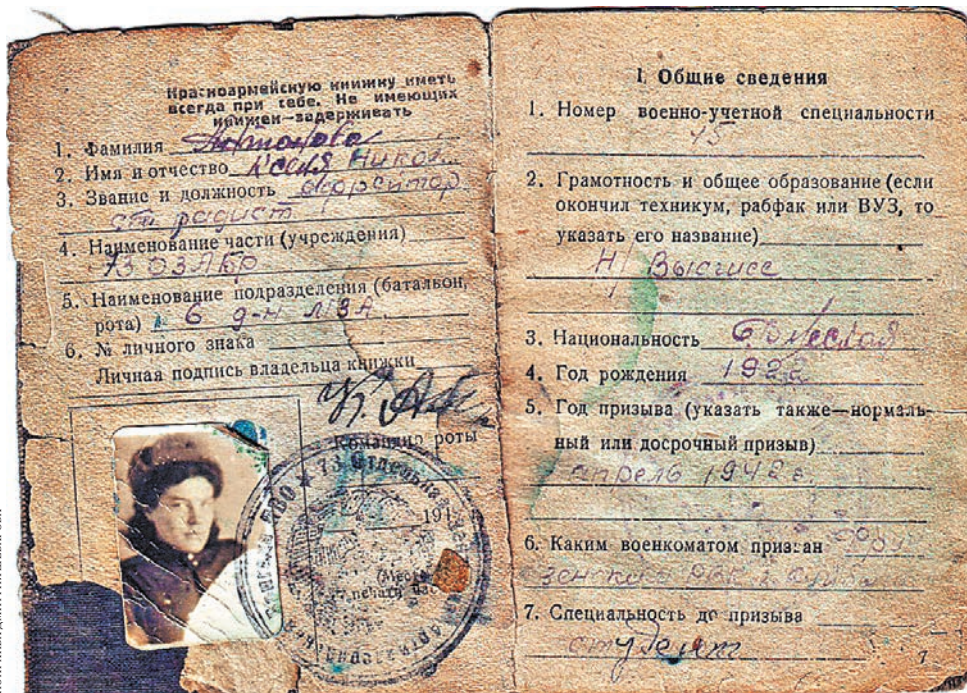 Красноармейскую книжку иметь
всегда при себе. Не имеющих
книжек—задерживать
1. Фамилия
2. Имя и отчество Ксения Никол.
3. Звание и должность ефрейтор
ст. радист
4. Наименование части (учреждения)
73 ОЗАБр
5. Наименование подразделения (батальон,
рота) 6 д-н МЗА
6. № личного знака
Личная подпись владельца книжки
Командир роты
194
(Место
печати
73 Отдельная
I. Общие сведения
1. Номер военно-учетной специальности
15
2. Грамотность и общее образование (если
окончил техникум, рабфак или ВУЗ, то
указать его название)
Н/Высшее
3. Национальность
4. Год рождения 1922
5. Год призыва (указать также—нормаль-
ный или досрочный призыв)
апрель 1942 г.
6. Каким военкоматом призван
7. Специальность до призыва
студент